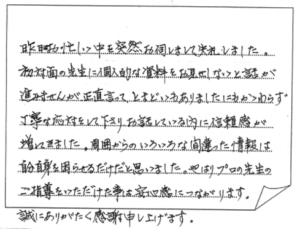 昨日お忙しい中を突然お伺いしまして失礼しました。
初対面の先生に個人的な資料をお見せしないと話が
進みませんが正直言って、とまどいもありましたにもかかわらず
丁寧な応対をして下さりお話している内に信頼感が
増してきました。周囲からのいろいろな間違った情報は
自分自身を困らせるだけだと思いました。やはりプロの先生の
ご指導をいただけた事は安心感につながります。
誠にありがたく感謝申し上げます。